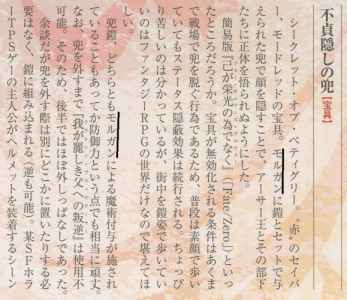 不貞隠しの兜【宝具】
シークレット・オブ・ペディグリー。赤のセイバ
ー、モードレッドの宝具。モルガンに鎧とセットで与
えられた兜で顔を隠すことで、アーサー王とその部下
たちに正体を悟られぬようにした。
簡易版『己が栄光の為でなく』(『Fate/Zero』)といっ
たところだろうか。宝具が無効化される条件はあくま
で戦場で兜を脱ぐ行為であるため、普段は素顔で歩い
ていてもステータス隠蔽効果は続行される。ちょっぴ
り苦しいのは分かっているが、街中を鎧姿で歩いてい
いのはファンタジーRPGの世界だけなので堪えてほ
しい。
兜鎧、どちらともモルガンによる魔術付与が施され
ていることもあってか防御力という点でも相当に頑丈。
なお、兜を外すまで『我が麗しき父への叛逆』は使用不
可能。そのため、後半ではほぼ外しっぱなしであった。
余談だが兜を外す際は別にどこかに置いたりする必
要はなく、鎧に組み込まれる(逆も可能)。某SFホラ
ーTPSゲーの主人公がヘルメットを装着するシーン